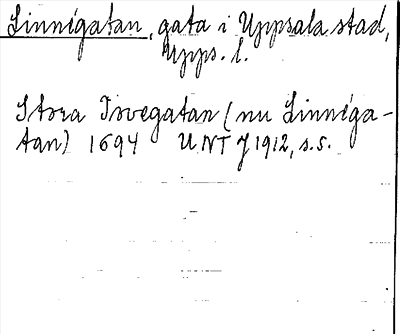 Linnégatan, gata i Uppsala stad,
Upps. l.
Stora Tovegatan (nu Linnéga-
tan) 1694 UNT J 1912, s.5.